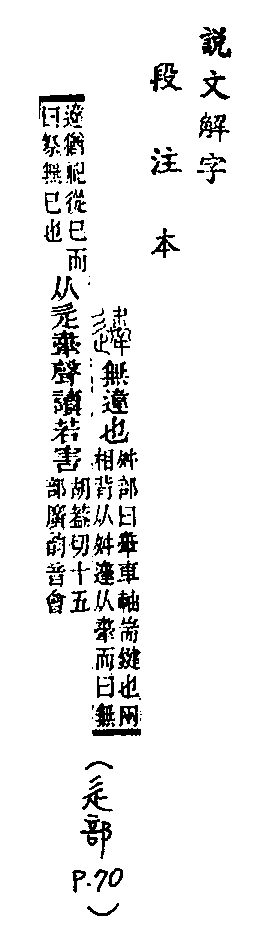 說文解字
段注本
無違也
舛部曰舝車軸耑鍵也兩
相背从舛从舝而曰無
違猶祀從巳而
曰祭無巳也
从辵舝聲讀若害
胡葢切十五
部廣韵音會
(辵部 P.70)